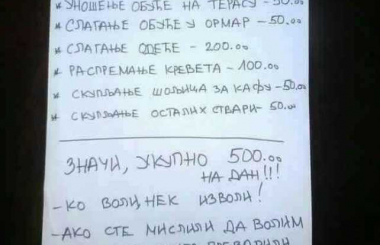 * УНОШЕЊЕ ОБУЋЕ НА ТЕРАСУ - 50.00
* СЛАГАЊЕ ОБУЋЕ У ОРМАР - 50.00
* СЛАГАЊЕ ОДЕЋЕ - 200.00
* РАСПРЕМАЊЕ КРЕВЕТА - 100.00
* СКУПЉАЊЕ ШОЉИЦА ЗА КАФУ - 50.00
* СКУПЉАЊЕ ОСТАЛИХ СТВАРИ - 50.00
ЗНАЧИ, УКУПНО 500.00
НА ДАН!!!
- КО ВОЛИ, НЕК ИЗВОЛИ!
- АКО СТЕ МИСЛИЛИ ДА ВОЛИМ